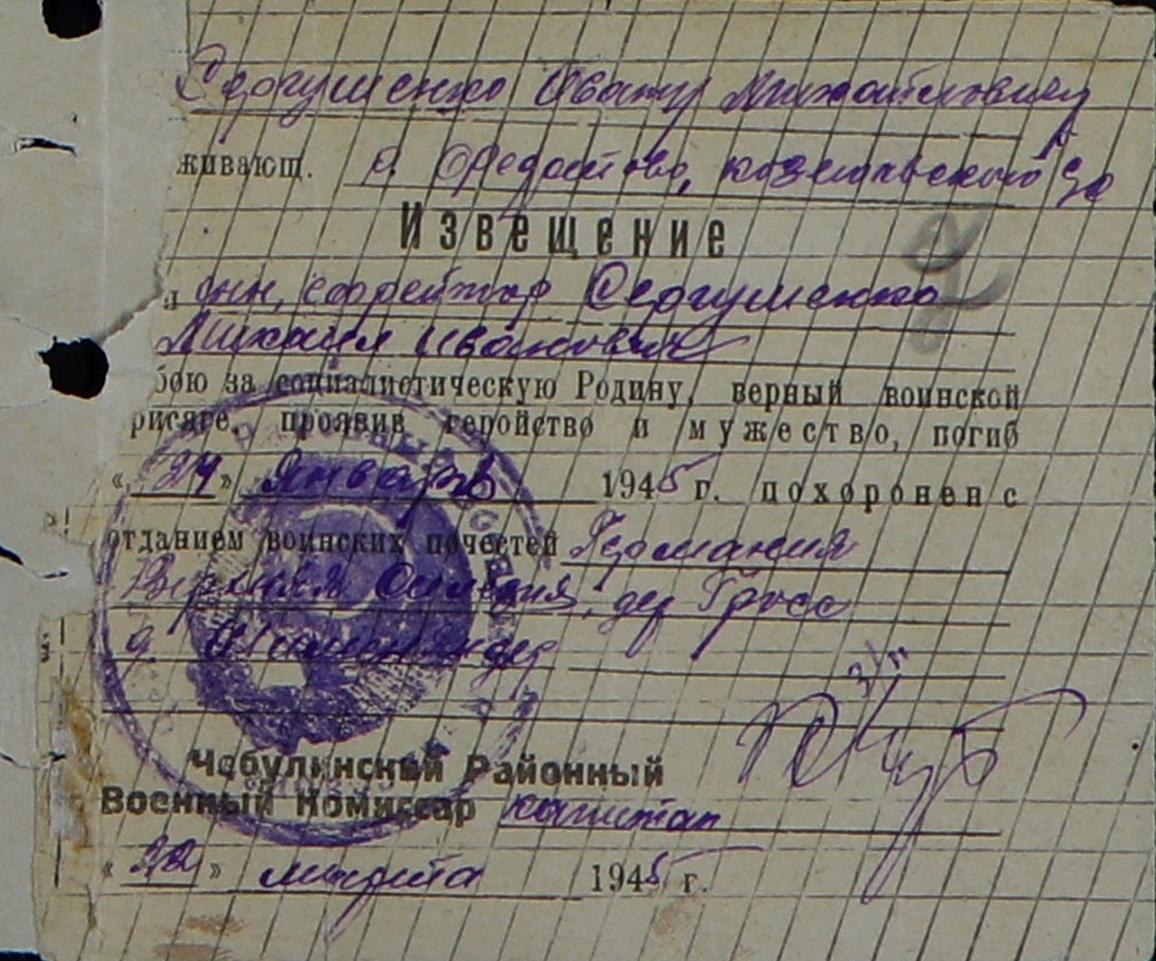 Сергушенко Ивану Михайловичу
живающ. с.
Извещение
а сын, ефрейтор Сергушенко
Михаил Иванович
бою за социалистическую Родину, верный воинской
рисяге, проявив геройство и мужество, погиб
„ 24 " января 1945 г. похоронен с
отданием воинских почестей Германия
Верхняя Силезия, дер Гросс
д.
п/п
Чебулинский Районный
Военный Комиссар капитан
„ 22 " марта 1945 г.